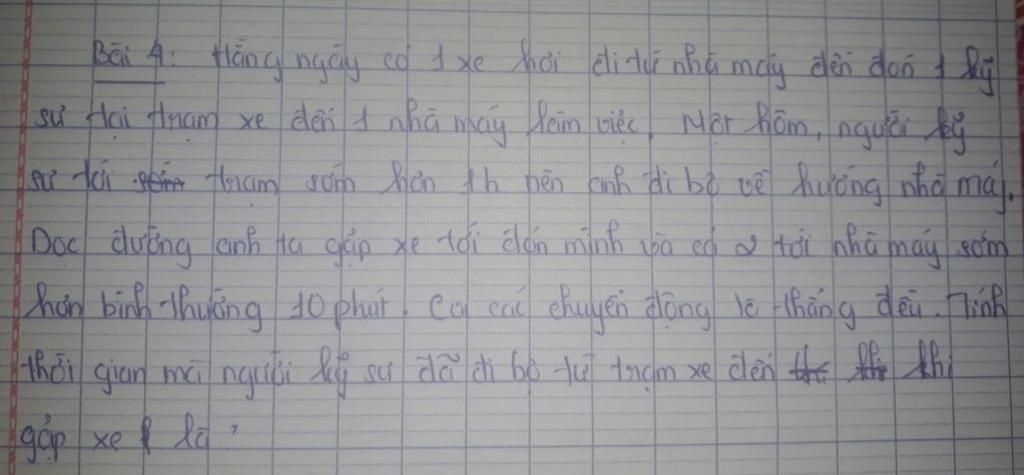 Bài 4: Hằng ngày có 1 xe hơi đi từ nhà máy đến đón 1 kỹ
sư tại trạm xe đến 1 nhà máy làm việc. Một hôm, người kỹ
sư tới trạm sớm hơn 1h nên anh đi bộ về hướng nhà máy.
Dọc đường anh ta gặp xe tới đón mình và cả 2 tới nhà máy sớm
hơn bình thường 10 phút. Coi các chuyển động là thẳng đều. Tính
thời gian mà người kỹ sư đã đi bộ từ trạm xe đến khi
gặp xe là?